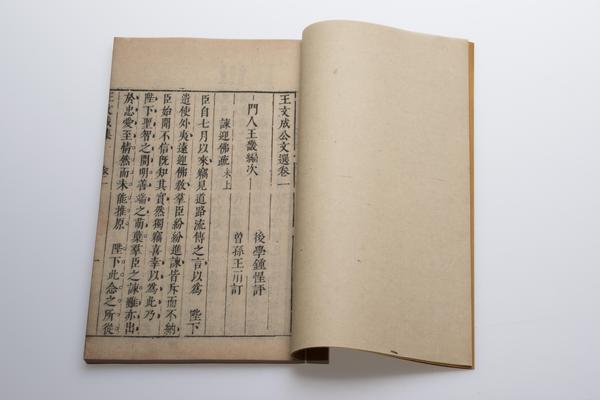 王文成公文選卷一
門人王畿編次
後學鍾惺評
曾孫王一訂
諫迎佛疏未上
臣自七月以來竊見道路流傳之言以爲 陛下
遣使外夷遠迎佛教羣臣紛紛進諫皆斥而不納
臣始聞不信旣知其實然獨竊喜幸以爲此乃
陛下聖智之開明善端之萌櫱羣臣之諫雖亦出
於忠愛至情然而未能推原 陛下此念之所從